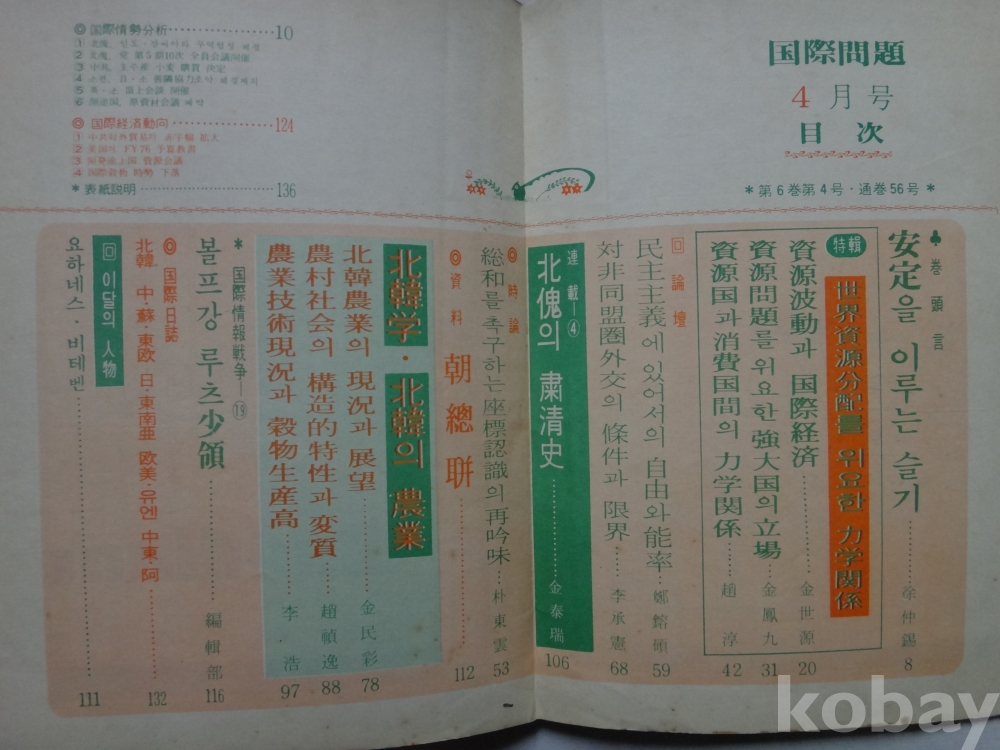 国際問題
4月号
目次
＊第6巻第4号·通巻56号＊
♣巻頭言
安定을 이루는 슬기 徐仲錫 8
特輯
世界資源分配를 위요한 力学関係
資源波動과 国際経済 金世源 20
資源問題를 위요한 強大国의 立場 金鳳九 31
資源国과 消費国間의 力学関係 趙淳 42
回 論壇
民主主義에 있어서의 自由와 能率 鄭鎔碩 59
対非同盟圏外交의 條件과 限界 李承憲 68
連載—④
北傀의 粛清史 金泰瑞 106
◎時論
総和를 촉구하는 座標認識의 再吟味 朴東雲 53
◎資料
朝總聯 112
北韓学·北韓의 農業
北韓農業의 現況과 展望 金民彩 78
農村社会의 構造的特性과 変質 趙禎逸 88
農業技術現況과 穀物生産高 李浩 97
＊国際情報戦争—⑲
볼프강 루츠少領 編輯部 116
◎国際日誌
北韓 中·蘇·東欧 日·東南亜 欧美·유엔 中東·阿 132
回 이달의 人物
요하네스·비테벤 111
◎国際情勢分析 10
② 北傀, 党 第5期10次 全員会議開催
⑤ 美·소 頂上会談 開催
◎国際経済動向 124
① 中共対外貿易의 赤字幅 拡大
② 美国의 FY76 予算教書
③ 開発途上国 資源会議
④ 国際穀物 時勢 下落
＊表紙説明 136
kobay